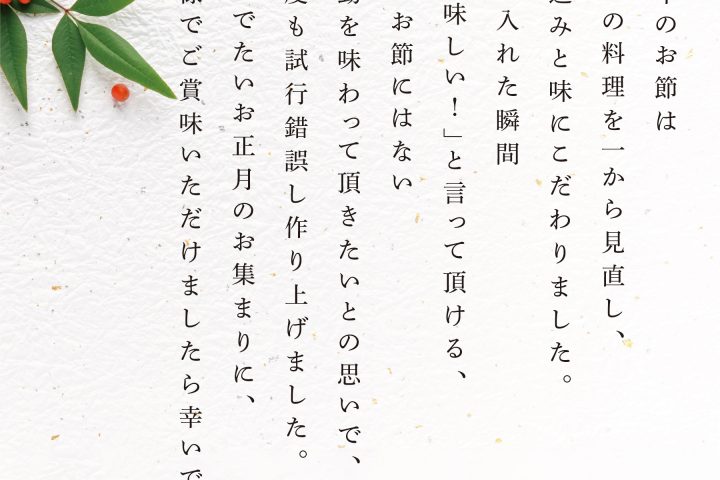 のお節は
の料理を一から見直し、
込みと味にこだわりました。
入れた瞬間
味しい！」と言って頂ける、
お節にはない
動を味わって頂きたいとの思いで、
度も試行錯誤し作り上げました。
でたいお正月のお集まりに、
様でご賞味いただけましたら幸いで